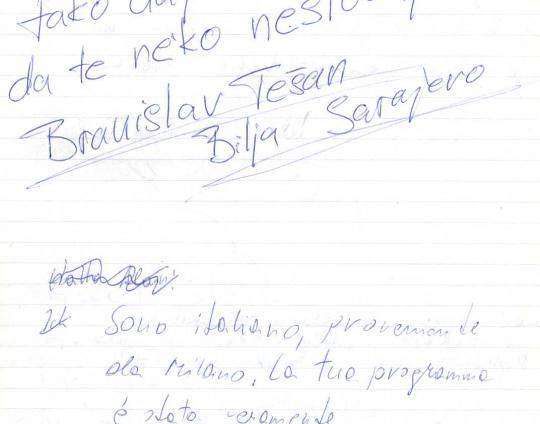 tako
da te neko
Branislav Tešan
Bilja Sarajevo
Sono italiano, proveniente
da Milano, la tua programma
é stata veramente